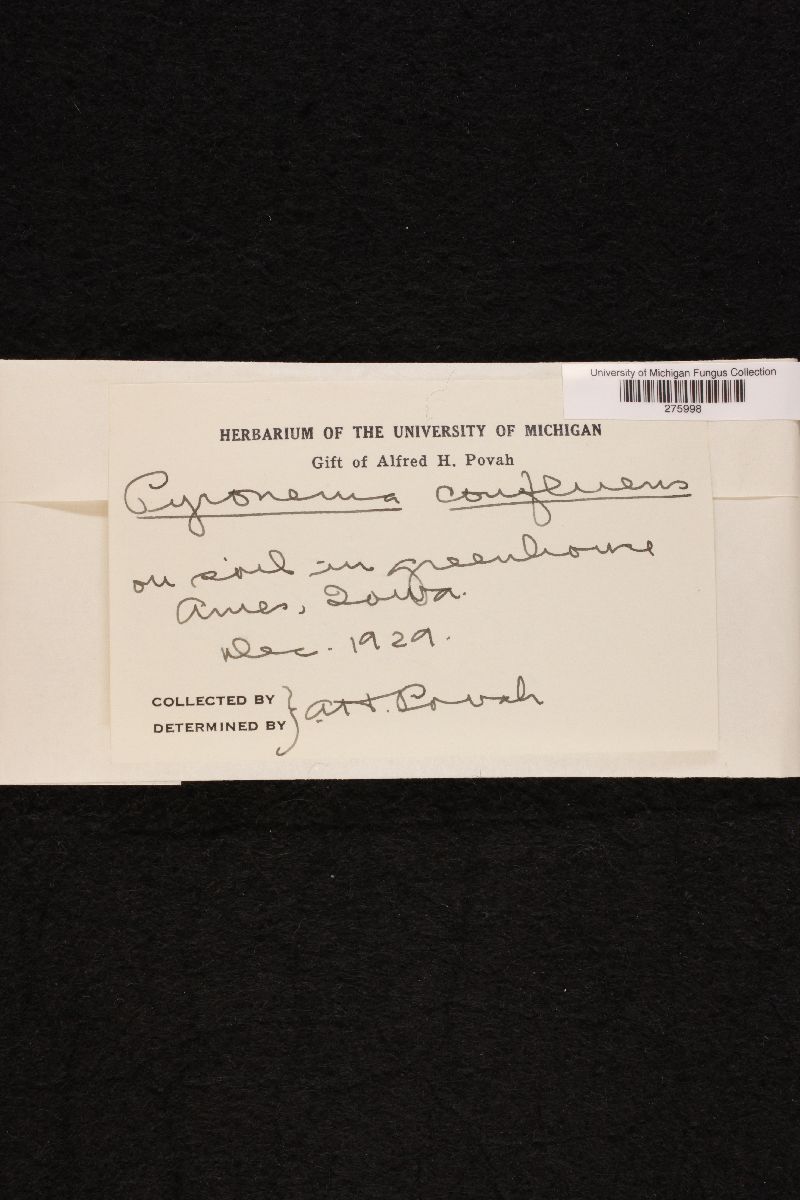 University of Michigan Fungus Collection
275998
HERBARIUM OF THE UNIVERSITY OF MICHIGAN
Gift of Alfred H. Povah
Pyronema confluens
on soil in greenhouse
Ames, Iowa.
Dec. 1929.
COLLECTED BY
DETERMINED BY } A.H. Povah